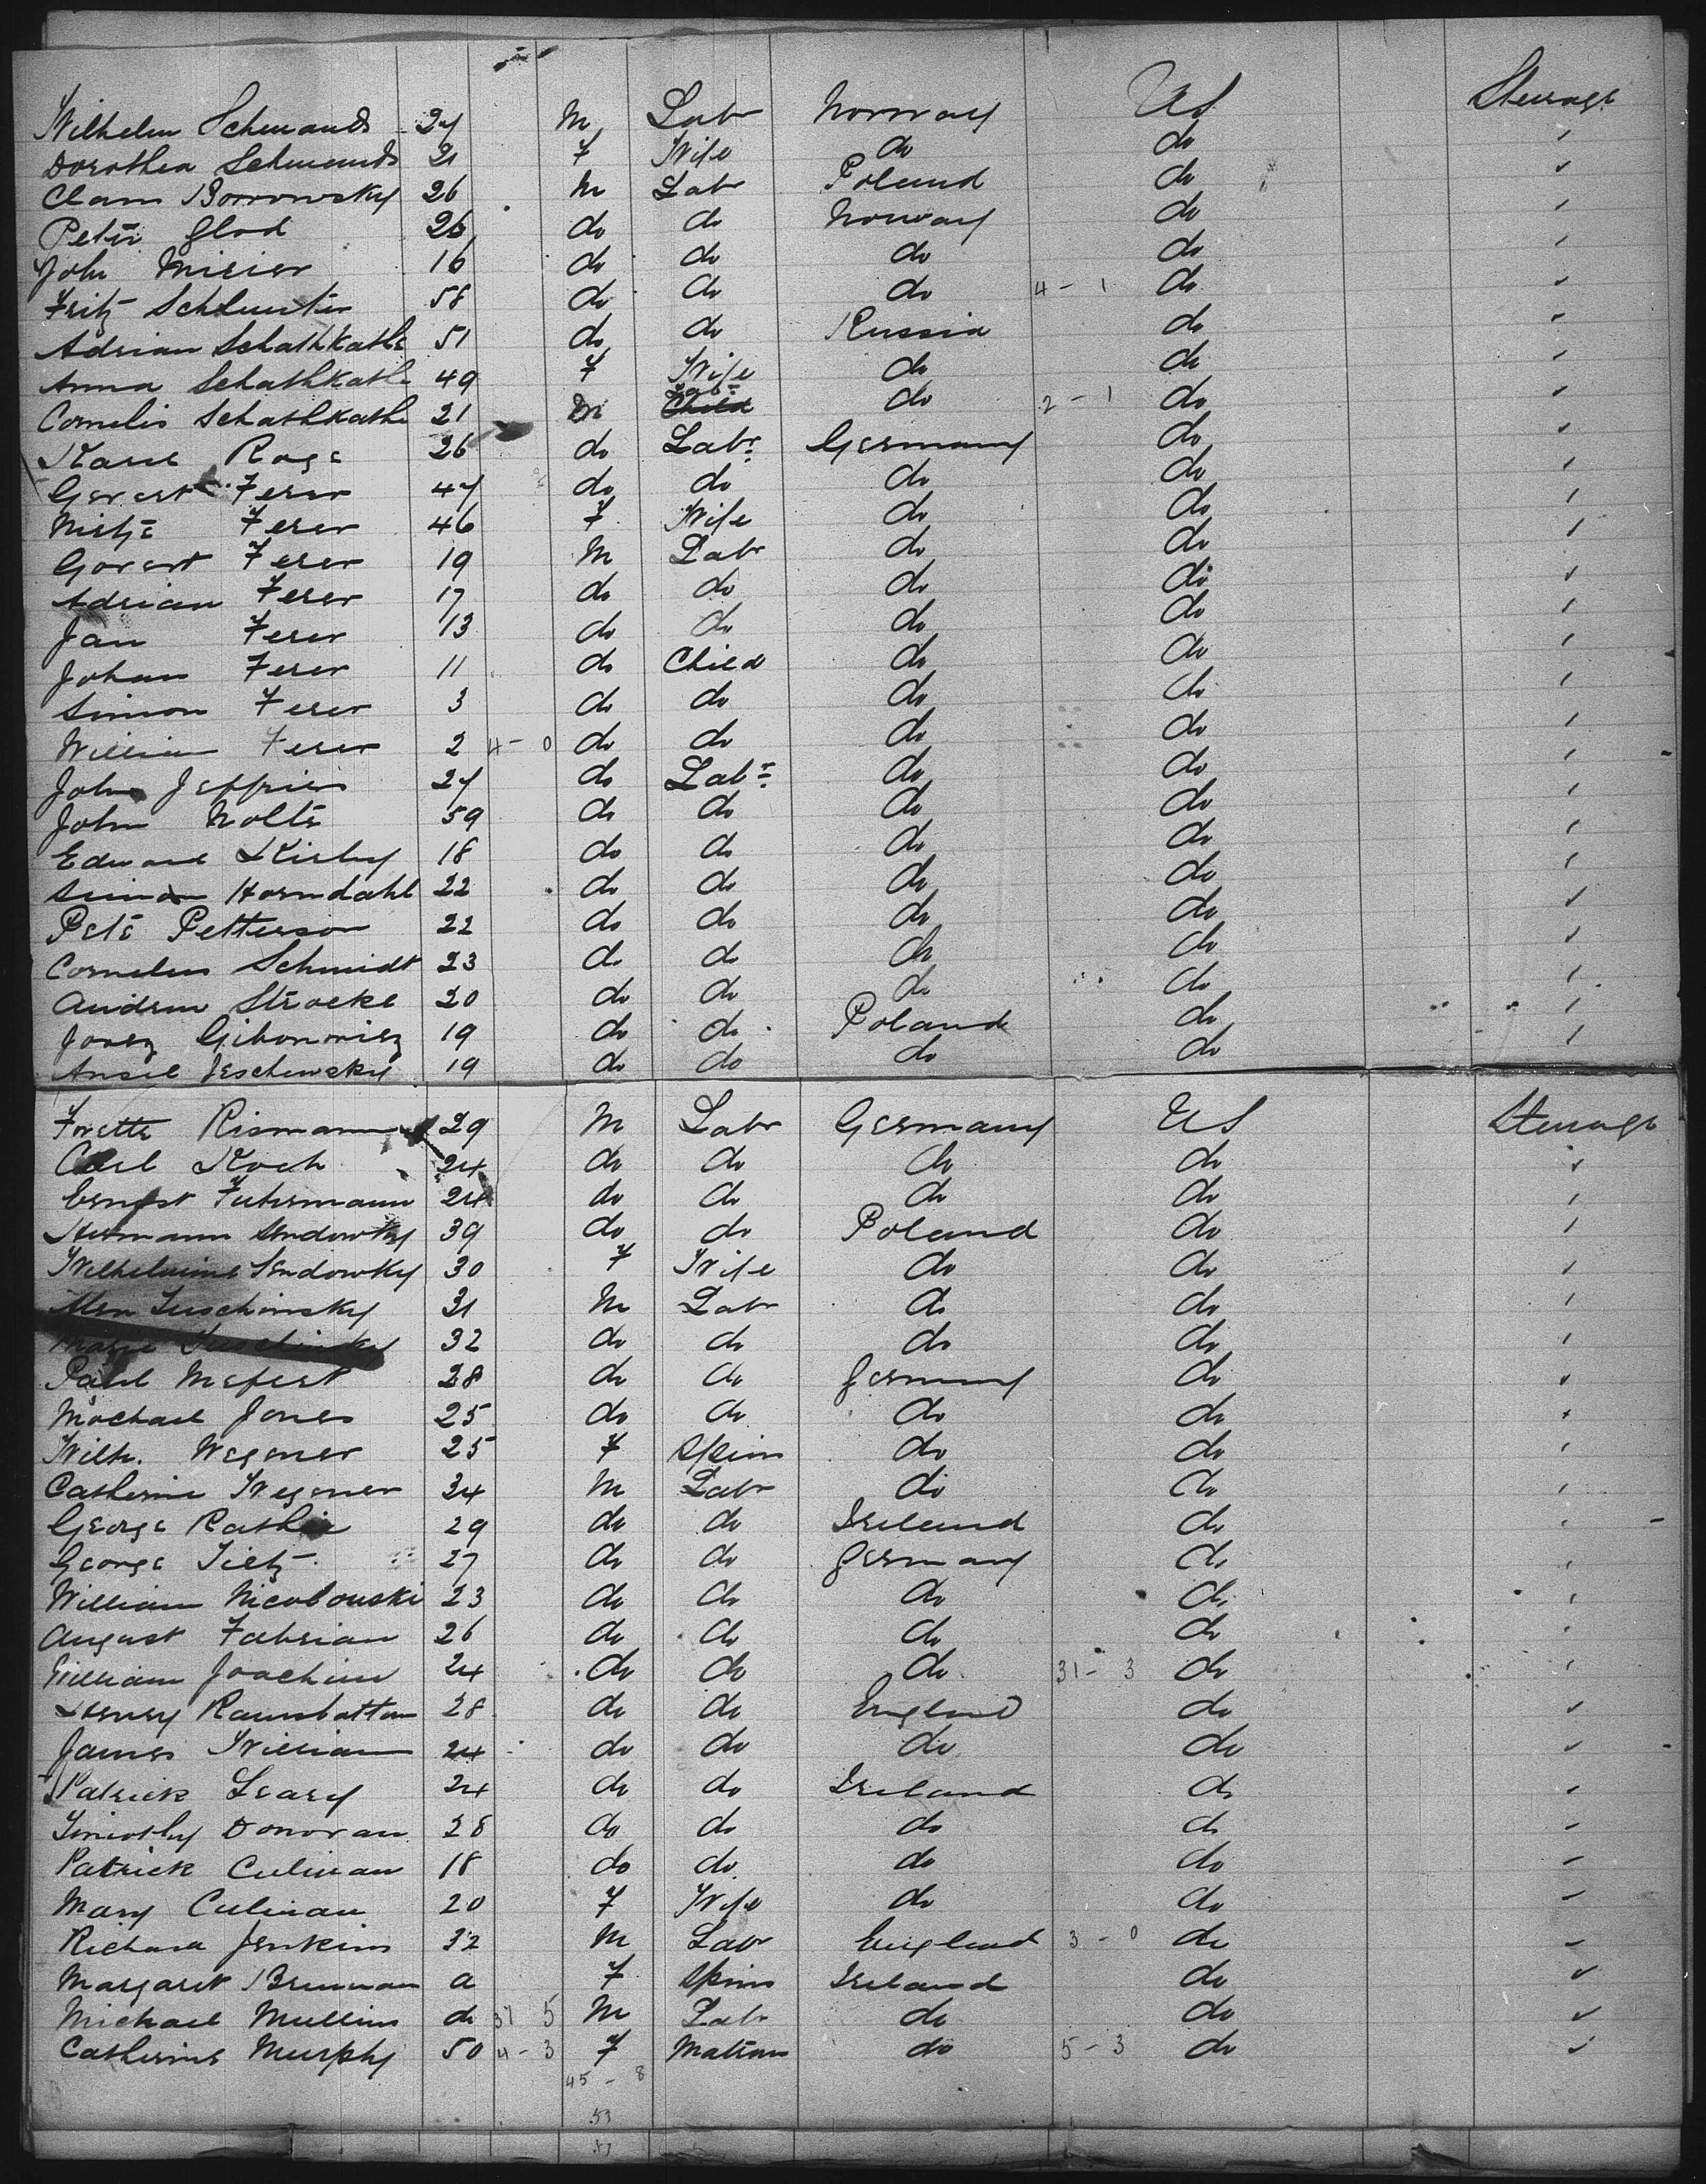 Wilhelm Schmands 27 M Labr Norway US Steerage
Dorothea Schmands 21 F Wife do do
Clam Borrowsky 26 M Labr Poland do
Peter Glod 26 do do Norway do
John Misier 16 do do do do
Fritz Schlunter 58 do do do 4 - 1 do
Adrian Schathkathe 51 do do Russia do
Anna Schathkathe 49 F Wife do do
Cornelis Schathkathe 21 M Labr do 2 - 1 do
Karl Roge 26 do Labr Germany do
Gerert Ferer 47 do do do do
Mitje Ferer 46 F Wife do do
Gorert Ferer 19 M Labr do do
Adrian Ferer 17 do do do do
Jan Ferer 13 do do do do
Johan Ferer 11 do Child do do
Simon Ferer 3 do do do do
William Ferer 2 4 - 0 do do do do
John Jeffries 27 do Labr do do
John Nolte 59 do do do do
Edward Kirby 18 do do do do
Simon Horndahl 22 do do do do
Pete Petterson 22 do do do do
Cornelius Schmidt 23 do do do do
Andrew Stroeke 20 do do do do
Josez Gibonowiez 19 do do Poland do
Ansel Jeschewsky 19 do do do do
Forette Rismann 29 M Labr Germany US Steerage
Carl Koch 24 do do do do
Ernest Fuhrmann 24 do do do do
Hermann Sendowky 39 do do Poland do
Wilhelmine Sendowky 30 F Wife do do
Luschinsky 31 M Labr do do
Marie Luschinsky 32 do do do do
Paul Mefert 28 do do Germany do
Michael Jones 25 do do do do
Wilh. Wegener 25 F Spins do do
Catherine Wegener 24 M Labr do do
George Rathie 29 do do Ireland do
George Tietz 27 do do Germany do
William Nicolouski 23 do do do do
August Fabrian 26 do do do do
William Joachim 24 do do do 31 - 3 do
Henry Ramsbottom 28 do do England do
James William 24 do do do do
Patrick Leary 24 do do Ireland do
Timothy Donovan 28 do do do do
Patrick Culinan 18 do do do do
Mary Culinan 20 F Wife do do
Richard Jenkins 32 M Labr England 3 - 0 do
Margaret Brennan a F Spins Ireland do
Michael Mullins do 37 5 M Labr do do
Catherine Murphy 50 4 - 3 F Matron do 5 - 3 do
45 - 8
53